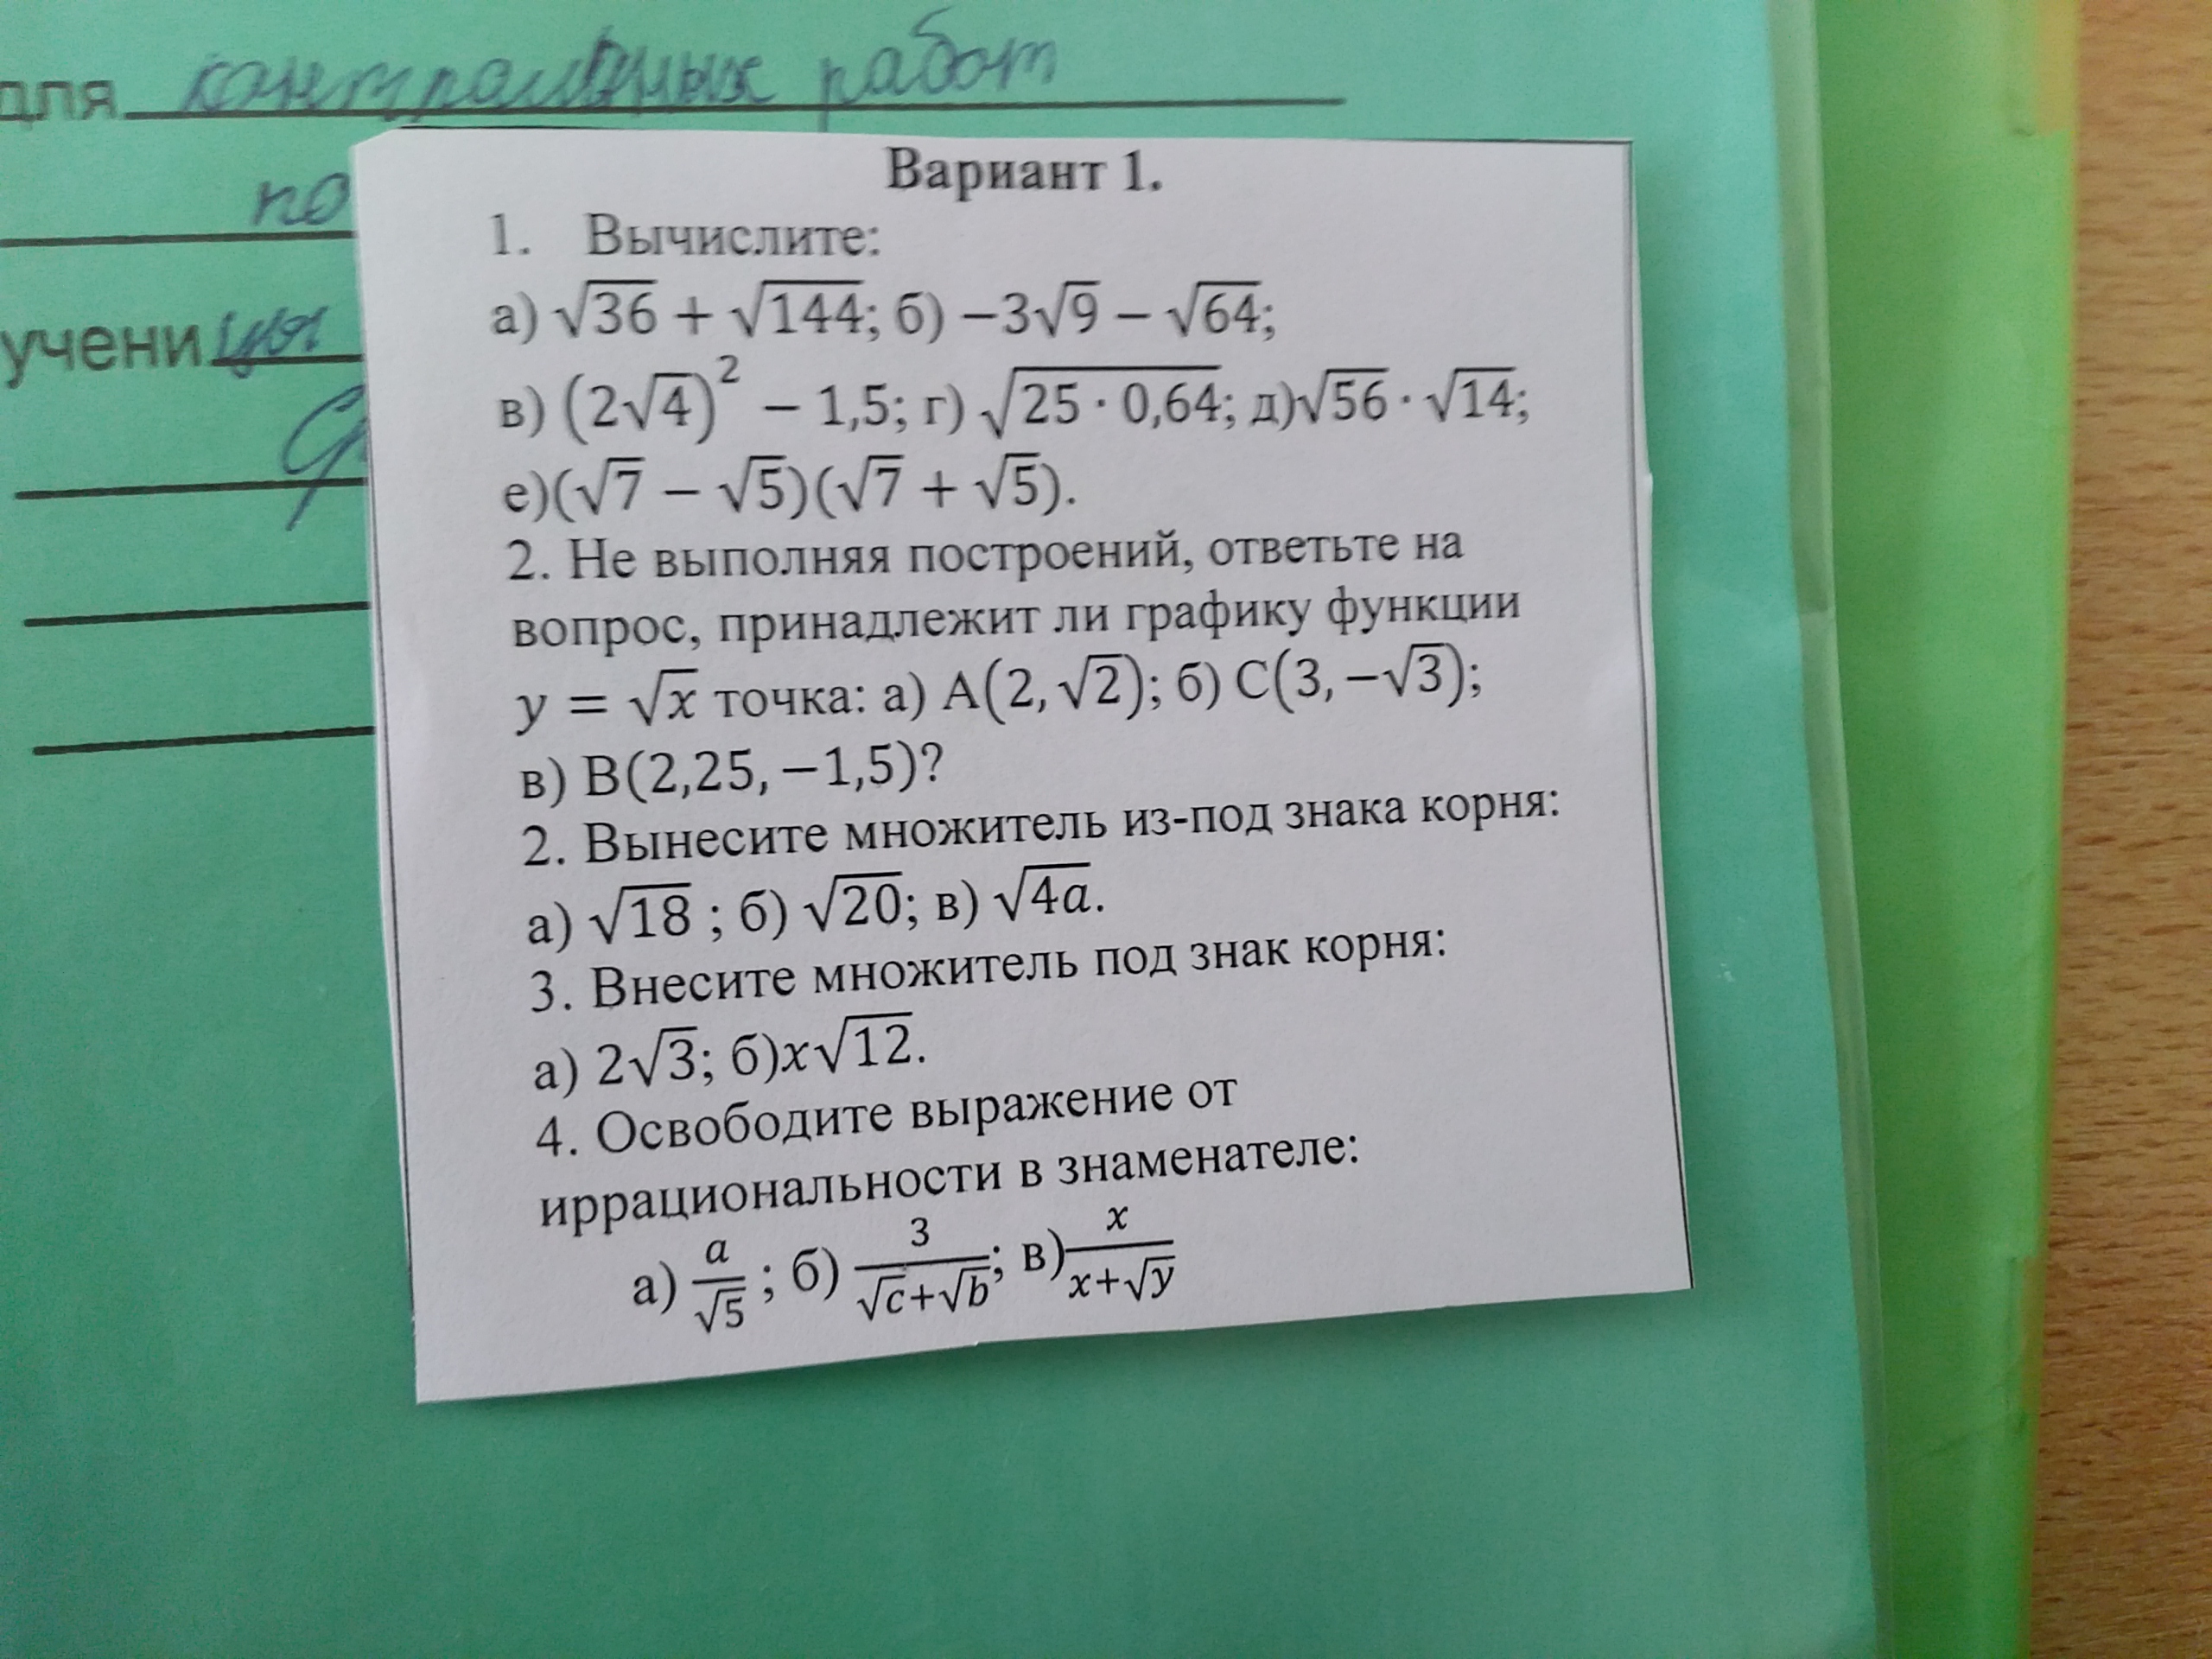 для контрольных работ
по
учени цы
Вариант 1.
1. Вычислите:
а) √36 + √144; б) −3√9 − √64;
в) (2√4)² − 1,5; г) √(25 · 0,64); д)√56 · √14;
е)(√7 − √5)(√7 + √5).
2. Не выполняя построений, ответьте на
вопрос, принадлежит ли графику функции
y = √x точка: а) A(2, √2); б) C(3, −√3);
в) B(2,25, −1,5)?
2. Вынесите множитель из-под знака корня:
а) √18 ; б) √20; в) √4a.
3. Внесите множитель под знак корня:
а) 2√3; б)x√12.
4. Освободите выражение от
иррациональности в знаменателе:
а) a/√5 ; б) 3/(√c+√b); в) x/(x+√y)